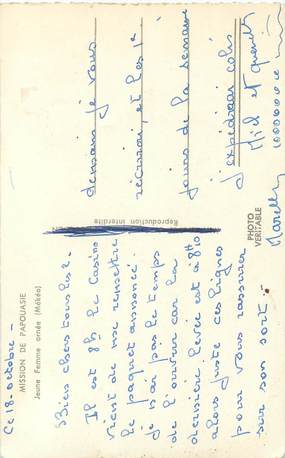 MISSION DE PAPOUASIE
Jeune Femme ornée (Mékéo)
Ce 18 - octobre -
Bien chers tous les 2 -
Il est 8h le Casino
vient de me remettre
le paquet annoncé.
Je n'ai pas le temps
de l'ouvrir car la
dernière levée est à 8h10
alors juste ces lignes
pour vous rassurer
sur son sort. -
Reproduction interdite
PHOTO
VÉRITABLE
demain je vous
récrirai, et les 1e
jours de la semaine
j'expédierai colis
Mil et
1000000